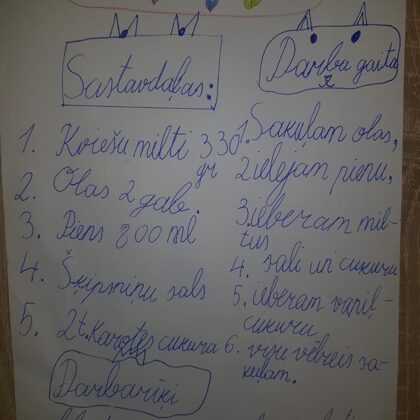 Sastāvdaļas:
1. Kviešu milti 330
gr
2. Olas 2 gab.
3. Piens 800 ml
4. Šķipsniņu sāls
5. 2 t. karotes cukura
Darba gaita
1. Sakuļam olas,
2 ielejam pienu,
3. ieberam mil-
tus
4. sāli un cukuru
5. ieberam vaniļ-
cukuru
6. visu vēlreiz sa-
kuļam.
Darbarīki